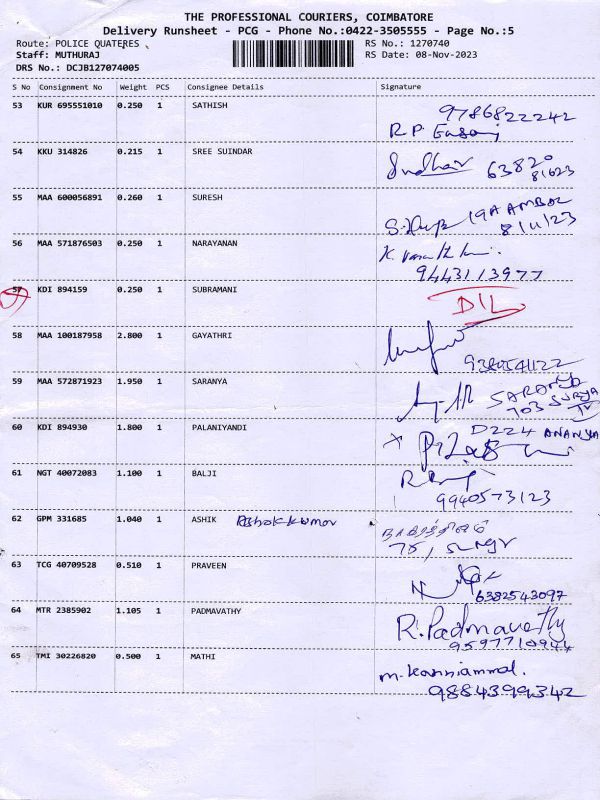 THE PROFESSIONAL COURIERS, COIMBATORE
Delivery Runsheet - PCG - Phone No.:0422-3505555 - Page No.:5
Route: POLICE QUATERES RS No.: 1270740
Staff: MUTHURAJ RS Date: 08-Nov-2023
DRS No.: DCJB127074005
S No Consignment No Weight PCS Consignee Details Signature
53 KUR 695551010 0.250 1 SATHISH 9786822242
R.P.
54 KKU 314826 0.215 1 SREE SUINDAR 63820
81623
55 MAA 600056891 0.260 1 SURESH
8/11/23
56 MAA 571876503 0.250 1 NARAYANAN
9443113977
57 KDI 894159 0.250 1 SUBRAMANI D/L
58 MAA 100187958 2.800 1 GAYATHRI
9380541122
59 MAA 572871923 1.950 1 SARANYA SARANYA
703 SURYA
60 KDI 894930 1.800 1 PALANIYANDI D224 ANANYA
61 NGT 40072083 1.100 1 BALJI
9940573123
62 GPM 331685 1.040 1 ASHIK Ashokkumar
75,
63 TCG 40709528 0.510 1 PRAVEEN
6382543097
64 MTR 2385902 1.105 1 PADMAVATHY R. Padmavathy
9597710944
65 TMI 30226820 0.500 1 MATHI M. Kanniammal.
9884399342